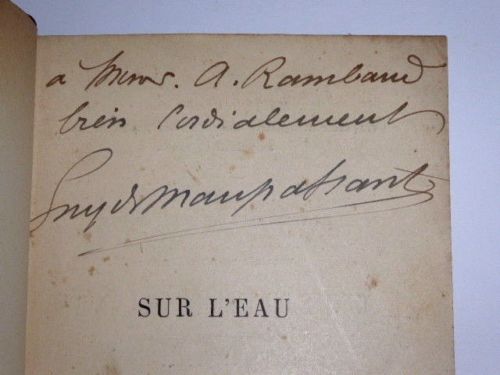 à Mme. A. Rambaud
bien Cordialement
Guy de Maupassant
SUR L'EAU